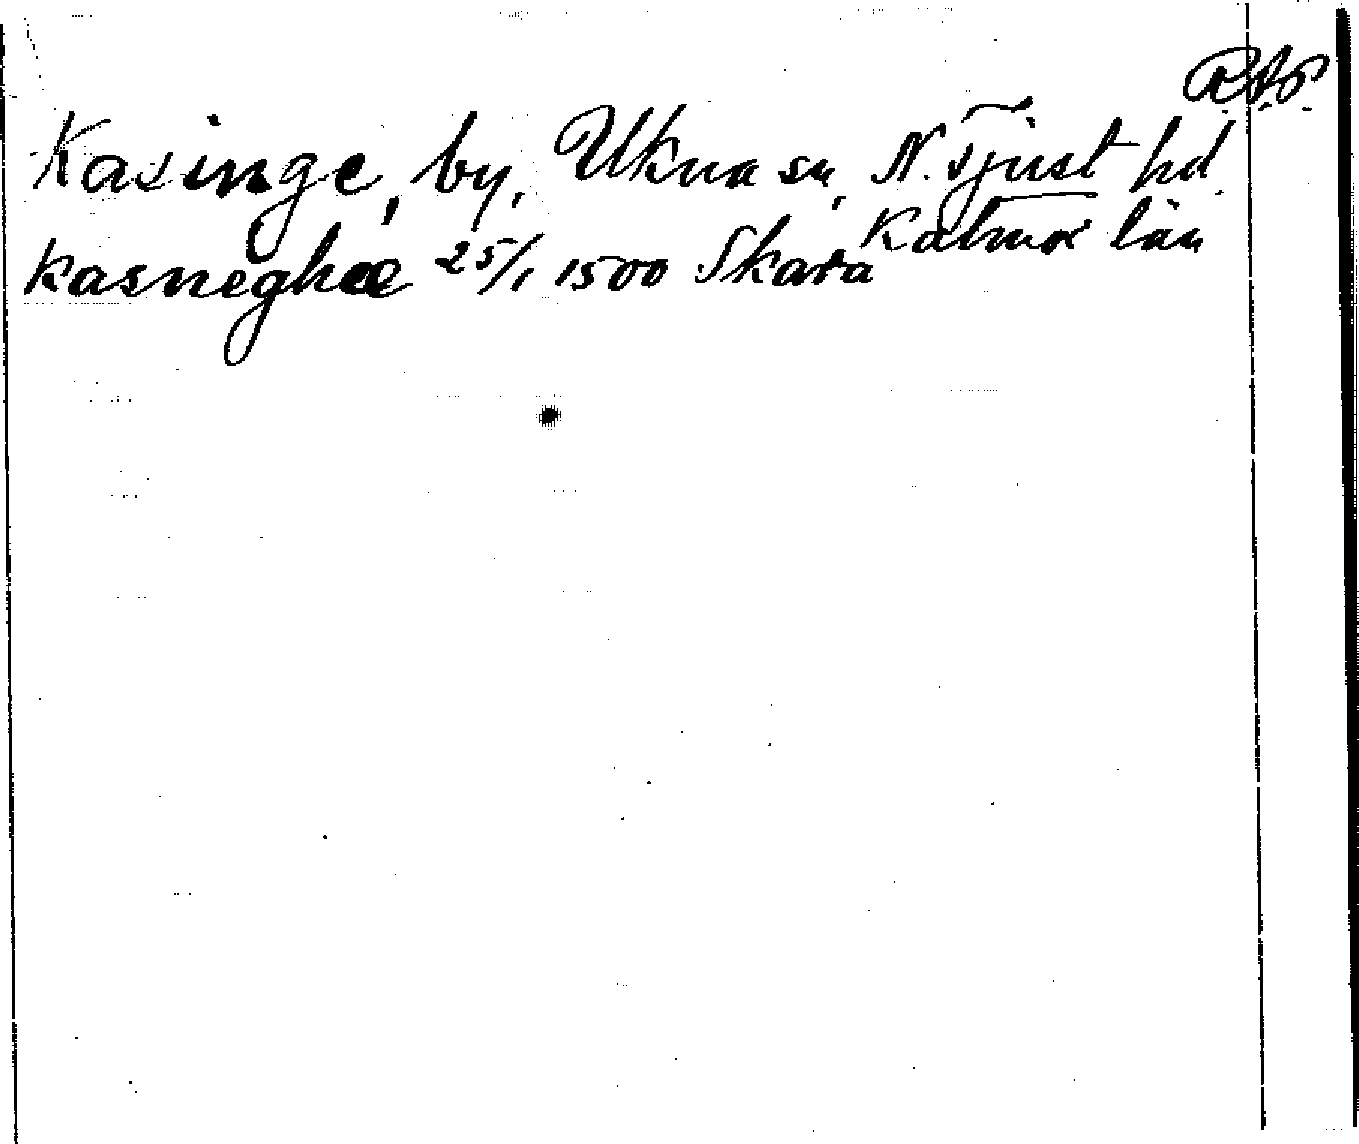 R.A.P.
Kasinge, by, Ukna sn, N. Tjust hd
Kalmar län
kasneghæ 25/1 1500 Skara